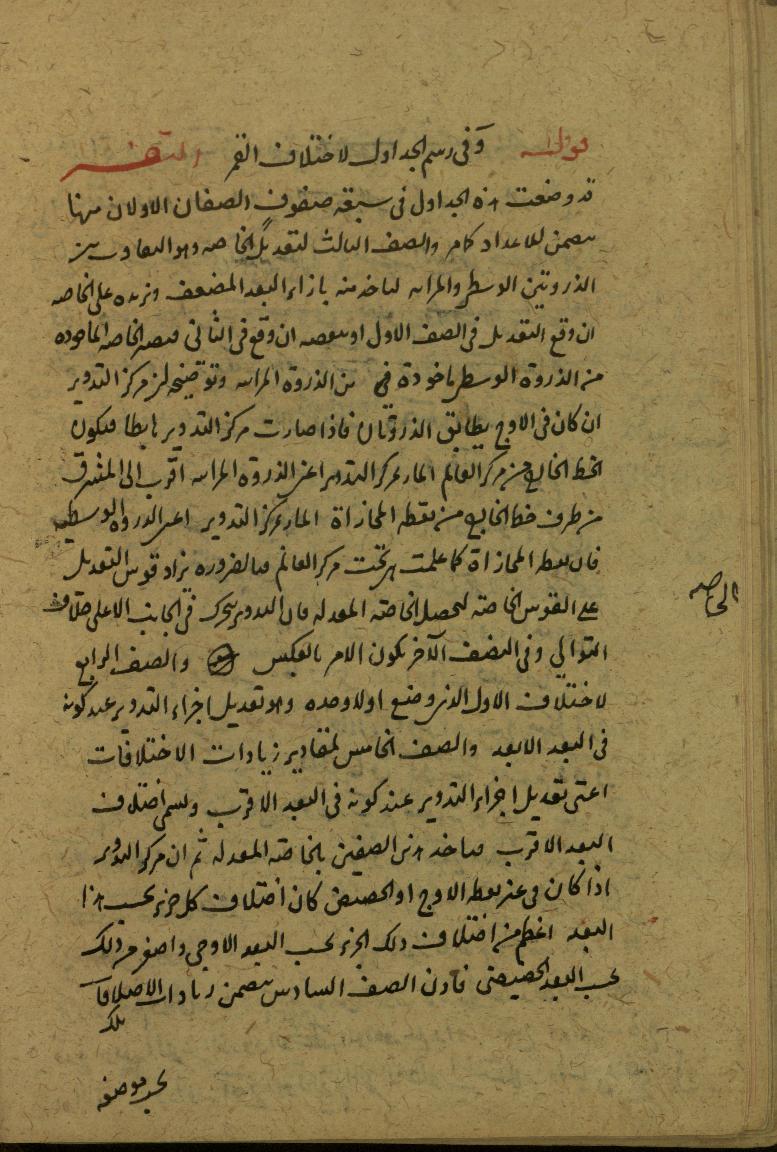 قوله وفى رسم الجداول لاختلاف القمر
قد وضعت هذه الجداول فى سبعة صفوف الصفان الاولان منها
يتضمن للاعداد كما مر والصف الثالث لتعديل الخاصه وهو التفاوت بين
الذروتين الوسطى والمرئيه لياخذ منه بازاء البعد المضعف ونزيده على الخاصه
ان وقع التعديل فى الصف الاول او ينقصه ان وقع فى الثانى فيصير الخاصه الماخوذه
من الذروة الوسطى ماخوذة من الذروة المرئيه وتوضيحه ان مركز التدوير
ان كان فى الاوج يطابق الذروتان فاذا صارت مركز التدوير هابطا فيكون
الخط الخارج من مركز العالم المار بمركز التدوير اعنى الذروه المرئيه اقرب الى المشرق
من طرف خط الخارج من نقطه المحازاة المار بمركز التدوير اعنى الذروه الوسطيه
فان نقطه المحازاة كما علمت هى تحت مركز العالم فبالضروره يزاد قوس التعديل
على القوس الخاصة ليحصل الخاصه المعدله فان التدوير يتحرك فى الجانب الاعلى خلاف
التوالي وفى النصف الآخر يكون الامر بالعكس والصف الرابع
لاختلاف الاول الذى وضع اولا وحده وهو تعديل اجزاء التدوير عند كونه
فى البعد الابعد والصف الخامس لمقادير زيادات الاختلافات
اعنى تعديل اجزاء التدوير عند كونه فى البعد الاقرب ويسمى اختلاف
البعد الاقرب فياخذ هذى الصفين بالخاصه المعدله ثم ان مركز التدوير
اذا كان فى غير نقطه الاوج او الحضيض كان اختلاف كل جزء بحسب هذا
البعد اعظم من اختلاف ذلك الجزء بحسب البعد الاوجى واصغر من ذلك
بحسب البعد الحضيضى فاذن الصف السادس يتضمن زيادات الاختلافات
تلك
الخاصه